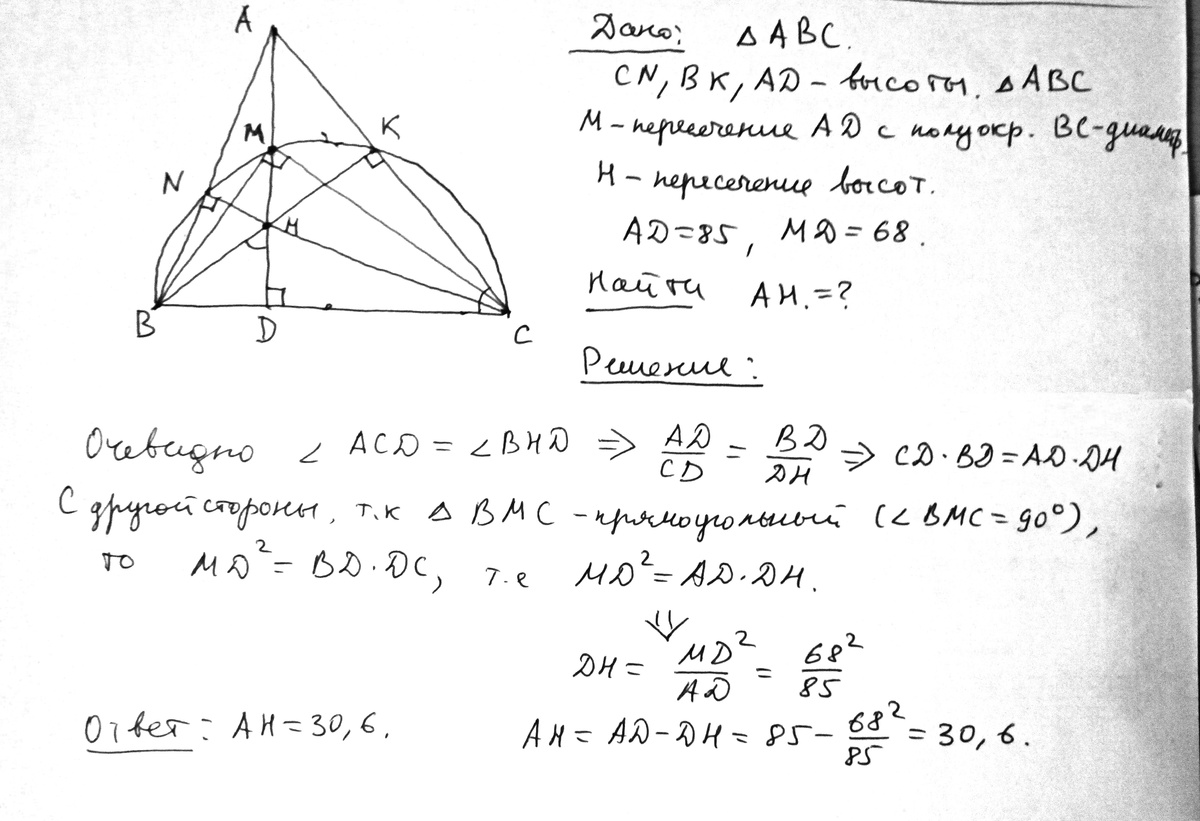 A
M
K
N
H
B
D
C
Дано: △ ABC.
CN, BK, AD – высоты. △ ABC
M – пересечение AD с полуокр. BC-диаметр.
H – пересечение высот.
AD = 85, MD = 68.
Найти AH. = ?
Решение:
Очевидно ∠ ACD = ∠ BHD ⇒ AD/CD = BD/DH ⇒ CD · BD = AD · DH
С другой стороны, т.к △ BMC – прямоугольный (∠ BMC = 90°),
то MD² = BD · DC, т.е MD² = AD · DH.
⇓
DH = MD²/AD = 68²/85
Ответ: AH = 30,6.
AH = AD – DH = 85 – 68²/85 = 30,6.